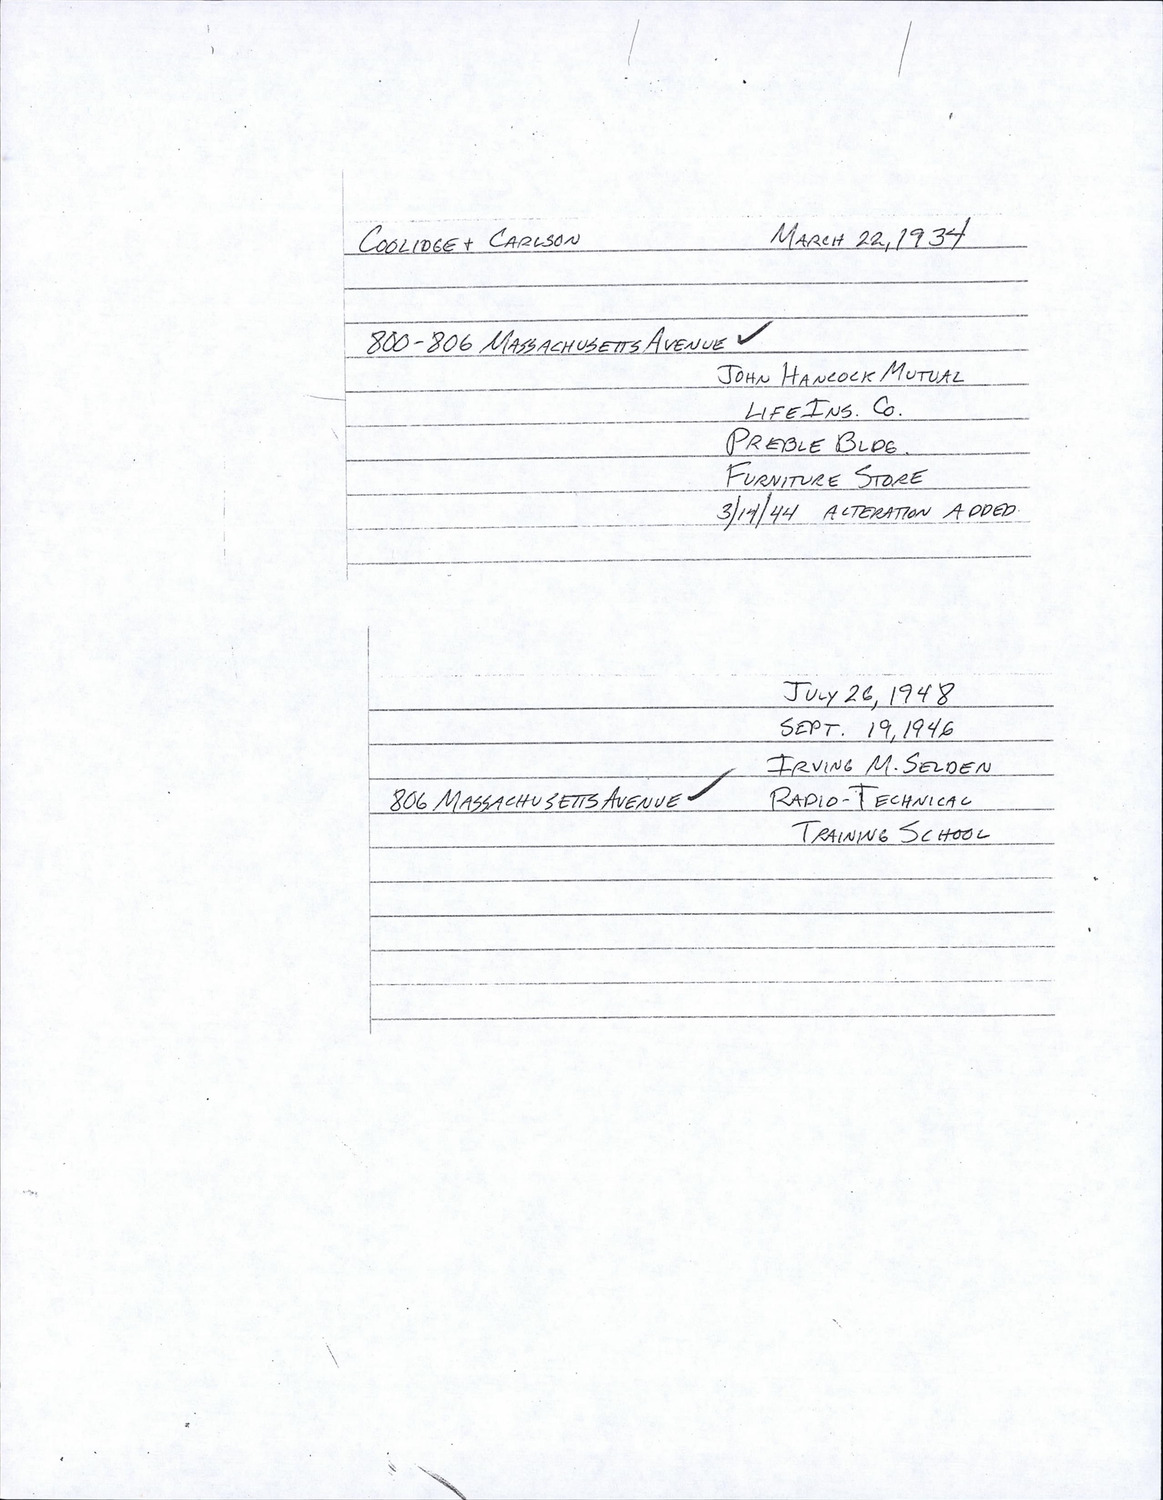 COOLIDGE + CARLSON MARCH 22, 1934
800-806 MASSACHUSETTS AVENUE ✓
JOHN HANCOCK MUTUAL
LIFE INS. CO.
PREBLE BLDG.
FURNITURE STORE
ALTERATION ADDED
JULY 26, 1948
SEPT. 19, 1946
IRVING M. SELDEN
806 MASSACHUSETTS AVENUE ✓ RADIO-TECHNICAL
TRAINING SCHOOL